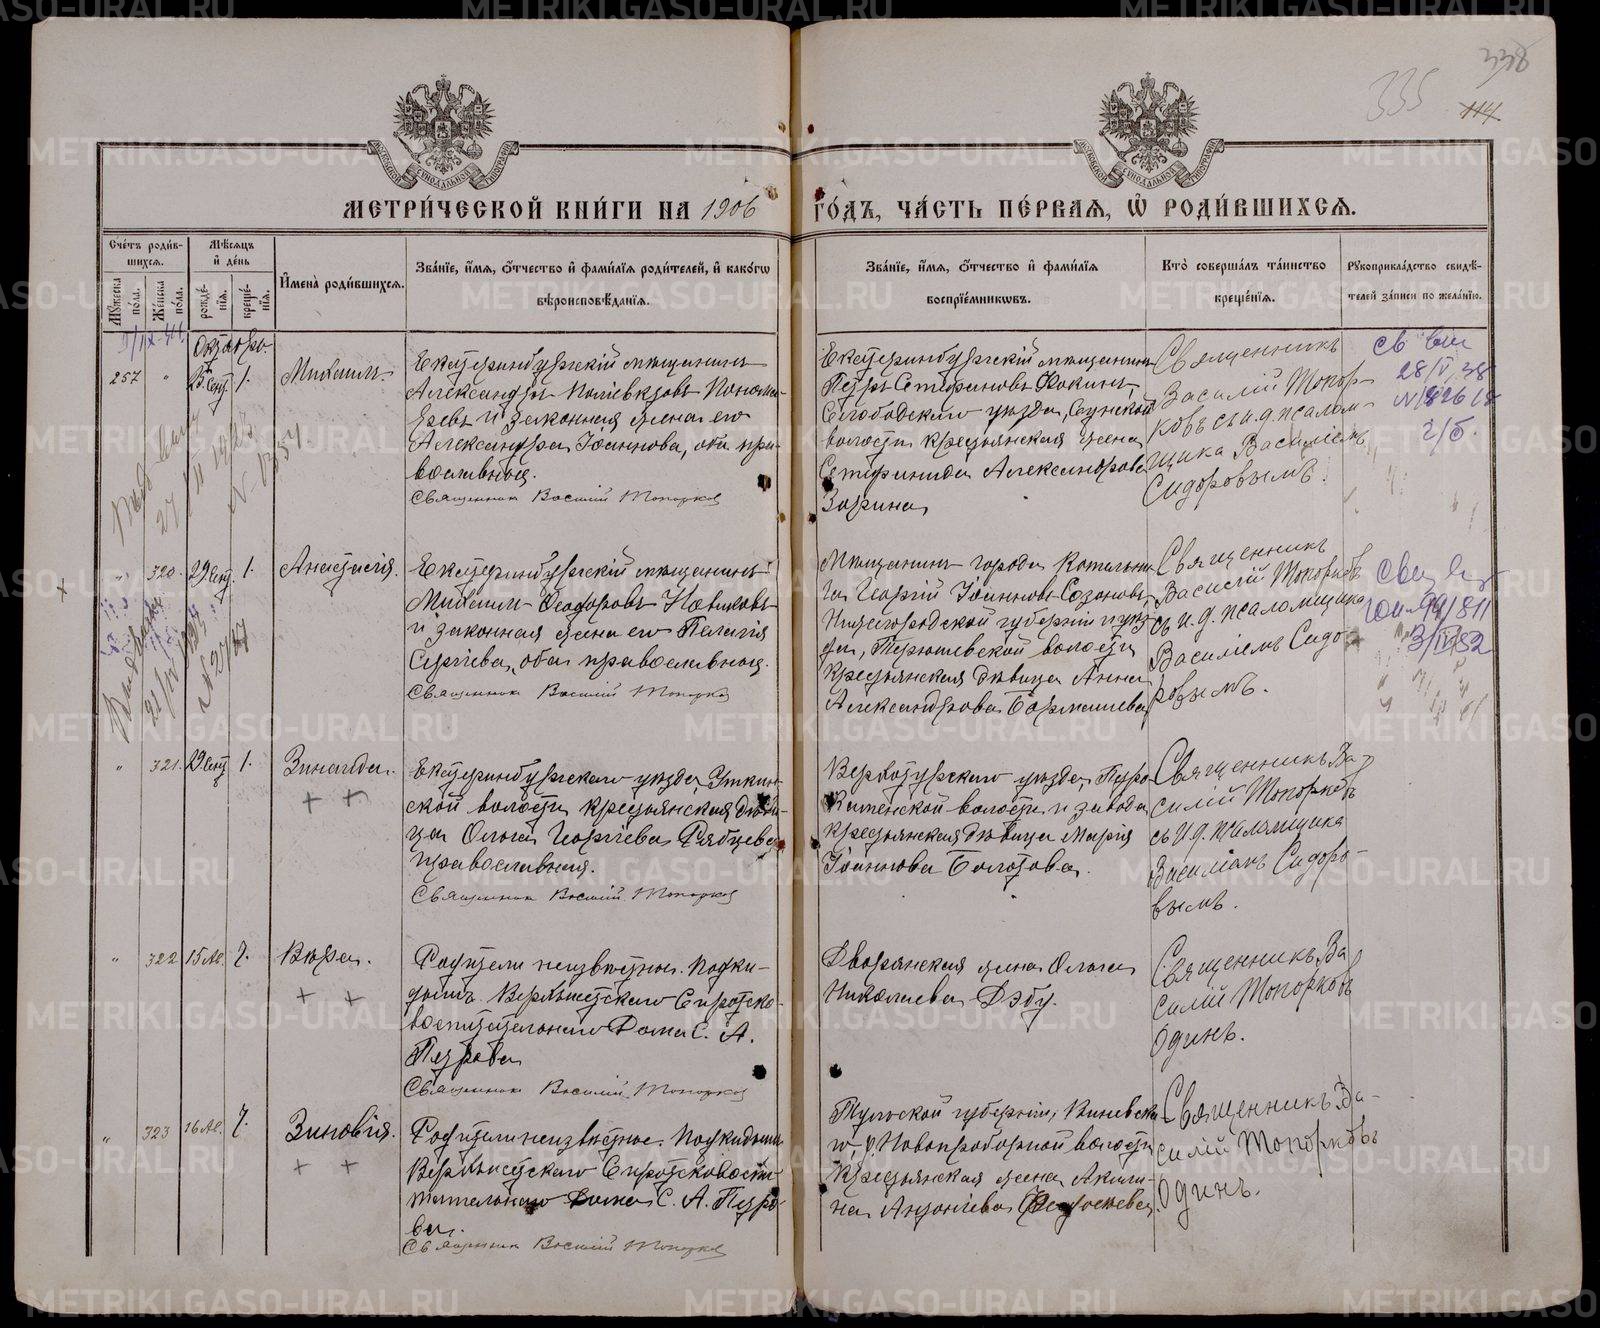 338
335
114
МЕТРИ́ЧЕСКОЙ КНИ́ГИ НА 1906 ГО́ДЪ, ЧА́СТЬ ПЕ́РВАЯ, Ѡ РОДИ́ВШИХСЯ.
Сче́тъ роди́в-
шихся.
Му́жеска по́ла.
Же́нска по́ла.
Мѣ́сяцъ и де́нь
рожде́нїя.
креще́нїя.
И҆мена̀ роди́вшихся.
Зва́нїе, и҆́мя, ѻ҆́тчество и҆ фами́лїя роди́телей, и҆ како́гѡ
вѣроисповѣ́данїя.
Зва́нїе, и҆́мя, ѻ҆́тчество и҆ фами́лїя
воспрїе́мниковъ.
Кто̀ соверша́лъ та́инство
креще́нїя.
Рꙋкоприкла́дство свидѣ́-
телей за́писи по жела́нїю.
Октябрь.
257 " 25 Сент. 1.
Михаилъ.
Екатеринбургскій мѣщанинъ
Александръ Поліевктовъ Понома-
ревъ и законная жена его
Александра Іоаннова, оба пра-
вославные.
Священник Василій Топорков
Екатеринбургскій мѣщанинъ
Петръ Стефановъ Кокинъ,
Слободского уѣзда, Сунской
волости, крестьянская жена
Стефанида Александрова
Зорина
Священникъ
Василій Топор-
ковъ съ и. д. псалом-
щика Василіемъ
Сидоровымъ.
28/V 38
" 320. 29 Сент. 1.
Анастасія.
Екатеринбургскій мѣщанинъ
Михаилъ Ѳеодоровъ Новиковъ
и законная жена его Пелагія
Сергіева, оба православные.
Священник Василій Топорков
Мѣщанинъ города Котельни-
ча Георгій Іоанновъ Созоновъ,
Нижегородской губерніи и уѣз-
да, Терюшевской волости,
крестьянская дѣвица Анна
Александрова Бармашева
Священникъ
Василій Топорковъ
съ и. д. псаломщика
Василіемъ Сидо-
ровымъ.
" 321. 29 Сент. 1.
Зинаида.
Екатеринбургскаго уѣзда, Уткин-
ской волости, крестьянская дѣви-
ца Ольга Георгіева Рябцева,
православная.
Священник Василій Топорков
Верхотурскаго уѣзда, Петро-
Каменской волости и завода
крестьянская дѣвица Марія
Іоаннова Болотова.
Священникъ Ва-
силій Топорковъ
съ И. д. псаломщика
Василіемъ Сидоро-
вымъ.
" 322 15 Ав. 7.
Вѣра.
Родители неизвѣстны. Подки-
дышъ Верхъ-Исетскаго Сиротско-
воспитательнаго Дома С. А.
Петрова
Священник Василій Топорков
Дворянская жена Ольга
Николаева Дэбу.
Священникъ Ва-
силій Топорковъ
Одинъ.
" 323 16 Ав. 7.
Зиновія.
Родители неизвѣстны. Подкидышъ
Верхъ-Исетскаго Сиротсковоспи-
тательнаго Дома С. А. Петро-
ва.
Священник Василій Топорков
Тульской губерніи, Веневска-
го у., Новопреборной волости
крестьянская жена Акили-
на Антоніева Федосѣева.
Священникъ Ва-
силій Топорковъ
Одинъ.